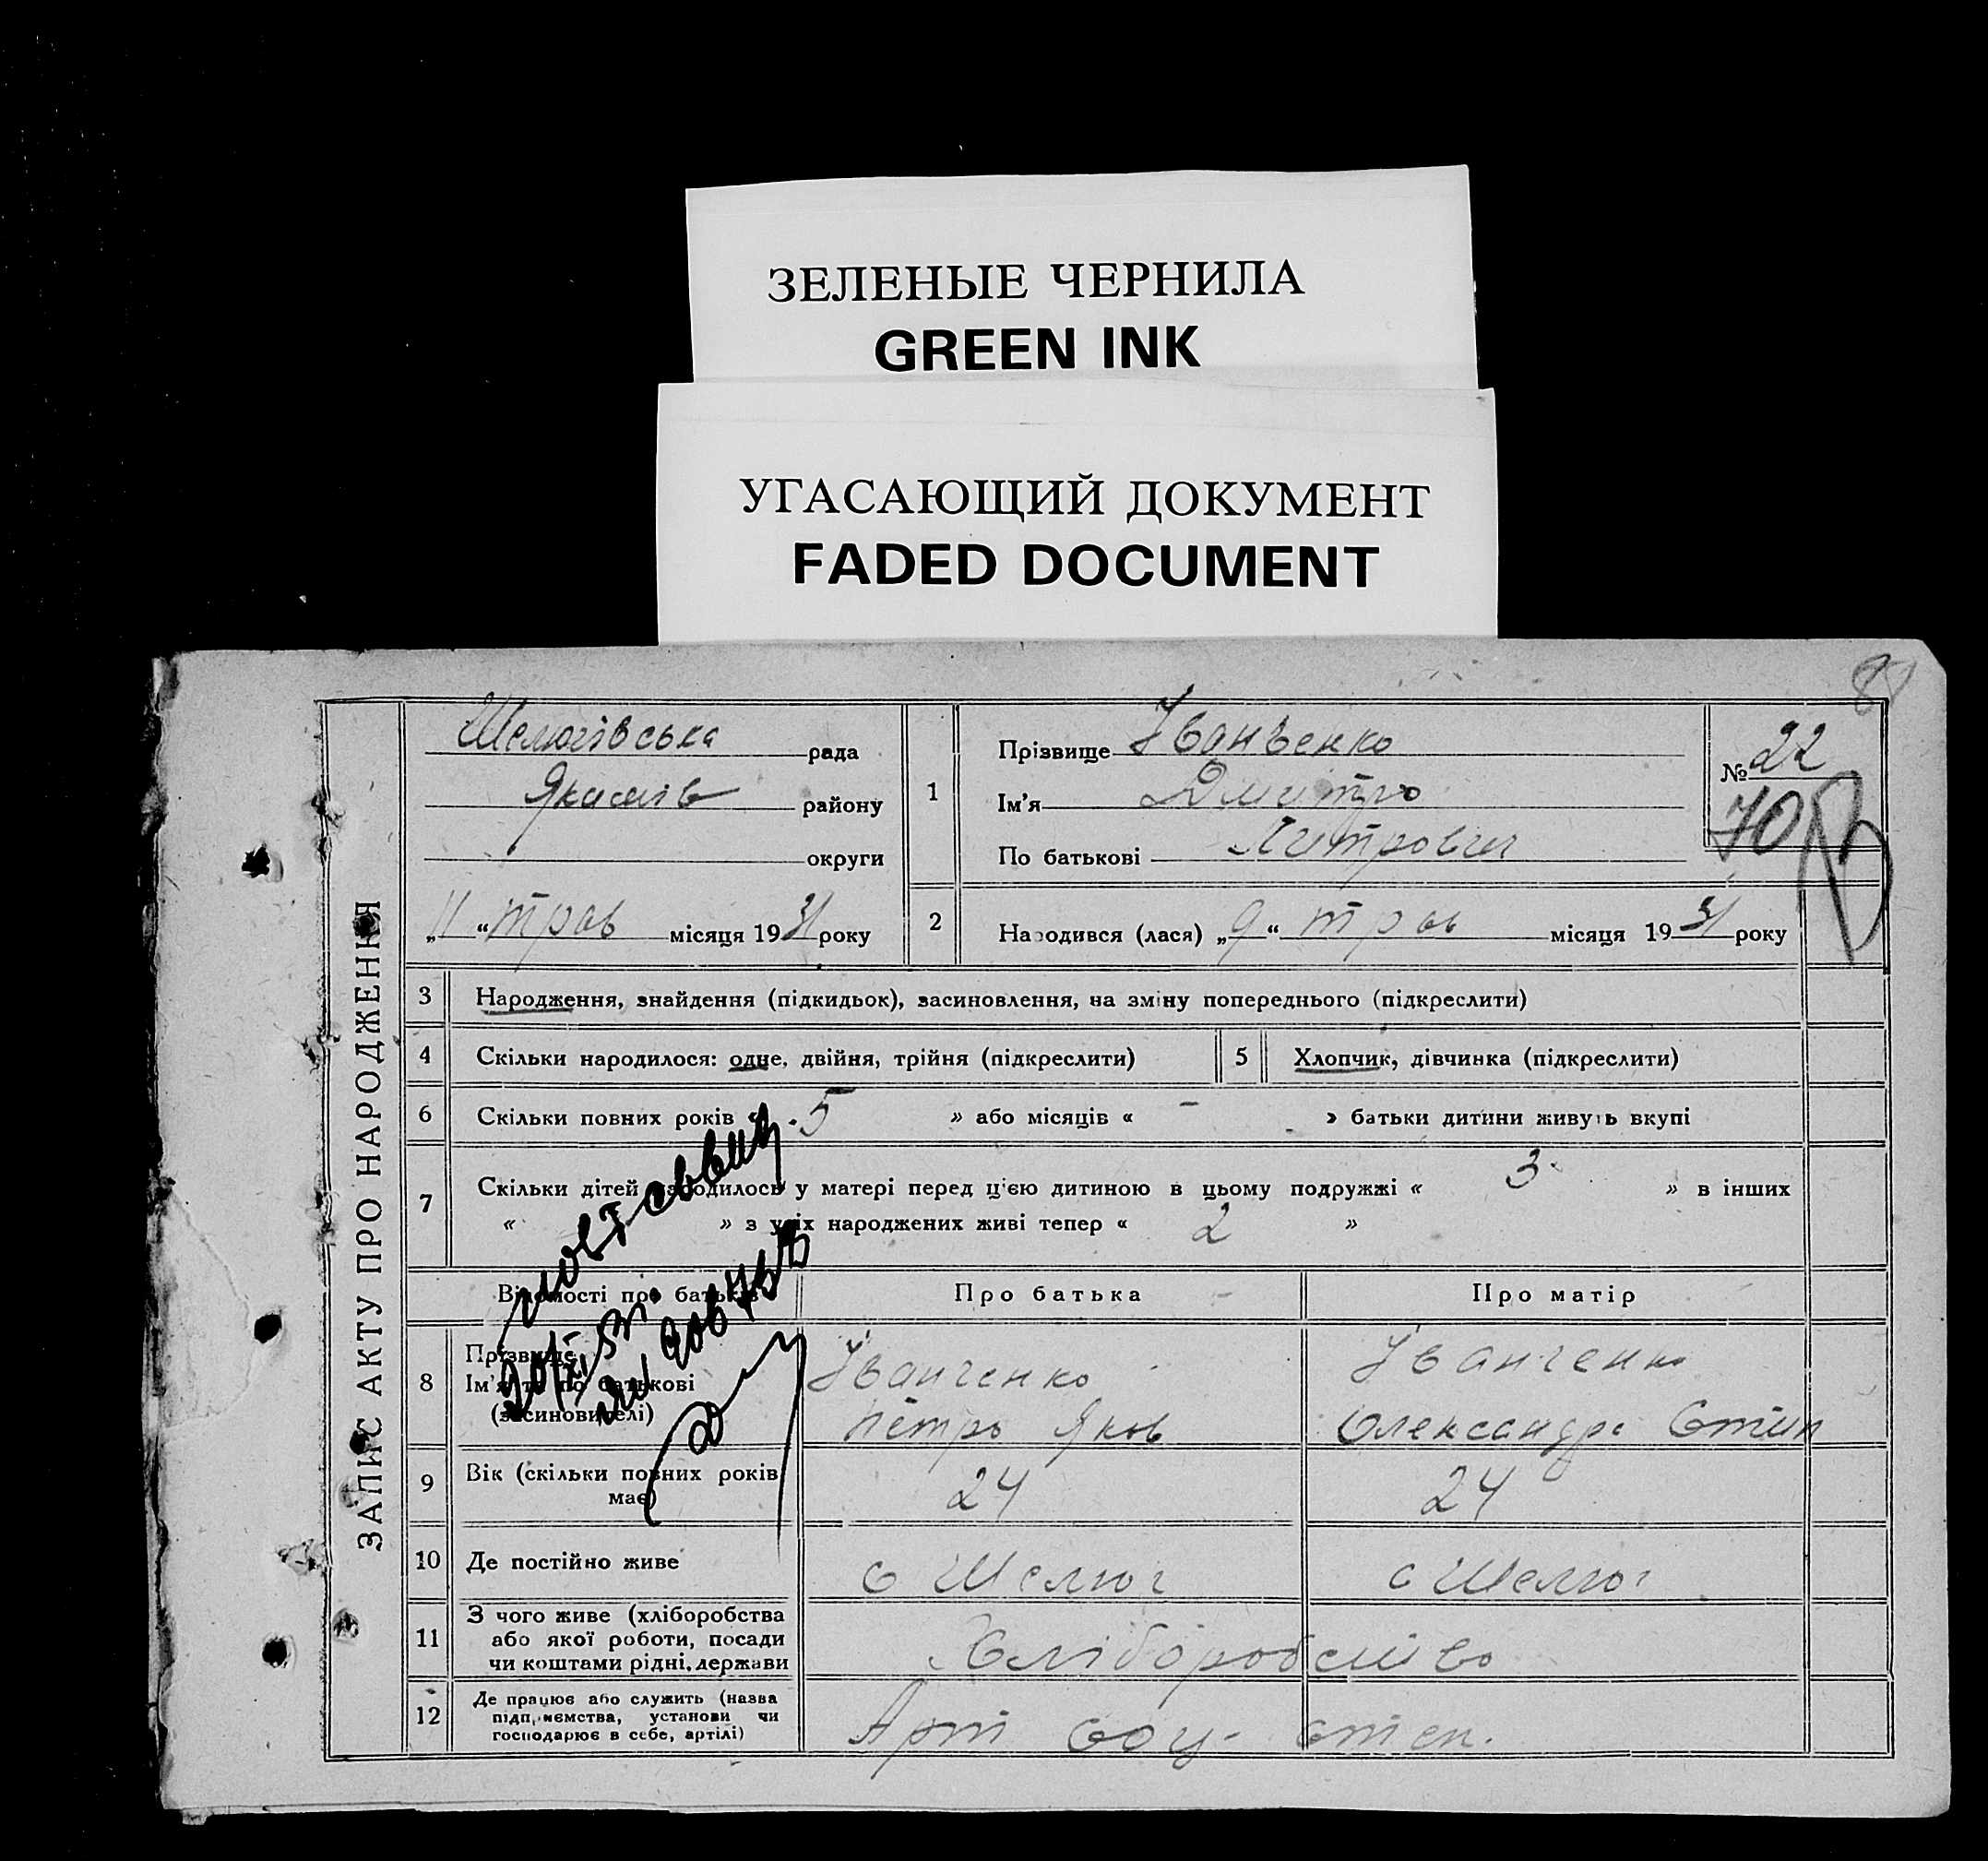 ЗЕЛЕНЫЕ ЧЕРНИЛА
GREEN INK
УГАСАЮЩИЙ ДОКУМЕНТ
FADED DOCUMENT
ЗАПИС АКТУ ПРО НАРОДЖЕННЯ
Шелюгівська рада
Якимів району
округи
„11“ трав місяця 1931 року
1
Прізвище Іванченко
Ім'я Дмитро
По батькові Петрович
№ 22
70
2 Народився (лася) „9“ трав місяця 1931 року
3 Народження, знайдення (підкидьок), засиновлення, на зміну попереднього (підкреслити)
4 Скільки народилося: одне, двійня, трійня (підкреслити) 5 Хлопчик, дівчинка (підкреслити)
6 Скільки повних років « 5 » або місяців « - » батьки дитини живуть вкупі
7 Скільки дітей народилось у матері перед цією дитиною в цьому подружжі « 3 » в інших
« » з усіх народжених живі тепер « 2 »
Відомості про батьків Про батька Про матір
8 Прізвище Іванченко Іванченко
Ім'я та по батькові Петро Яков Олександра Степ
(засиновителі)
9 Вік (скільки повних років має) 24 24
10 Де постійно живе с Шелюг с Шелюг
11 З чого живе (хліборобства
або якої роботи, посади
чи коштами рідні, держави Хліборобство
12 Де працює або служить (назва
підприємства, установи чи
господарює в себе, артілі) Арт Соц. степ.